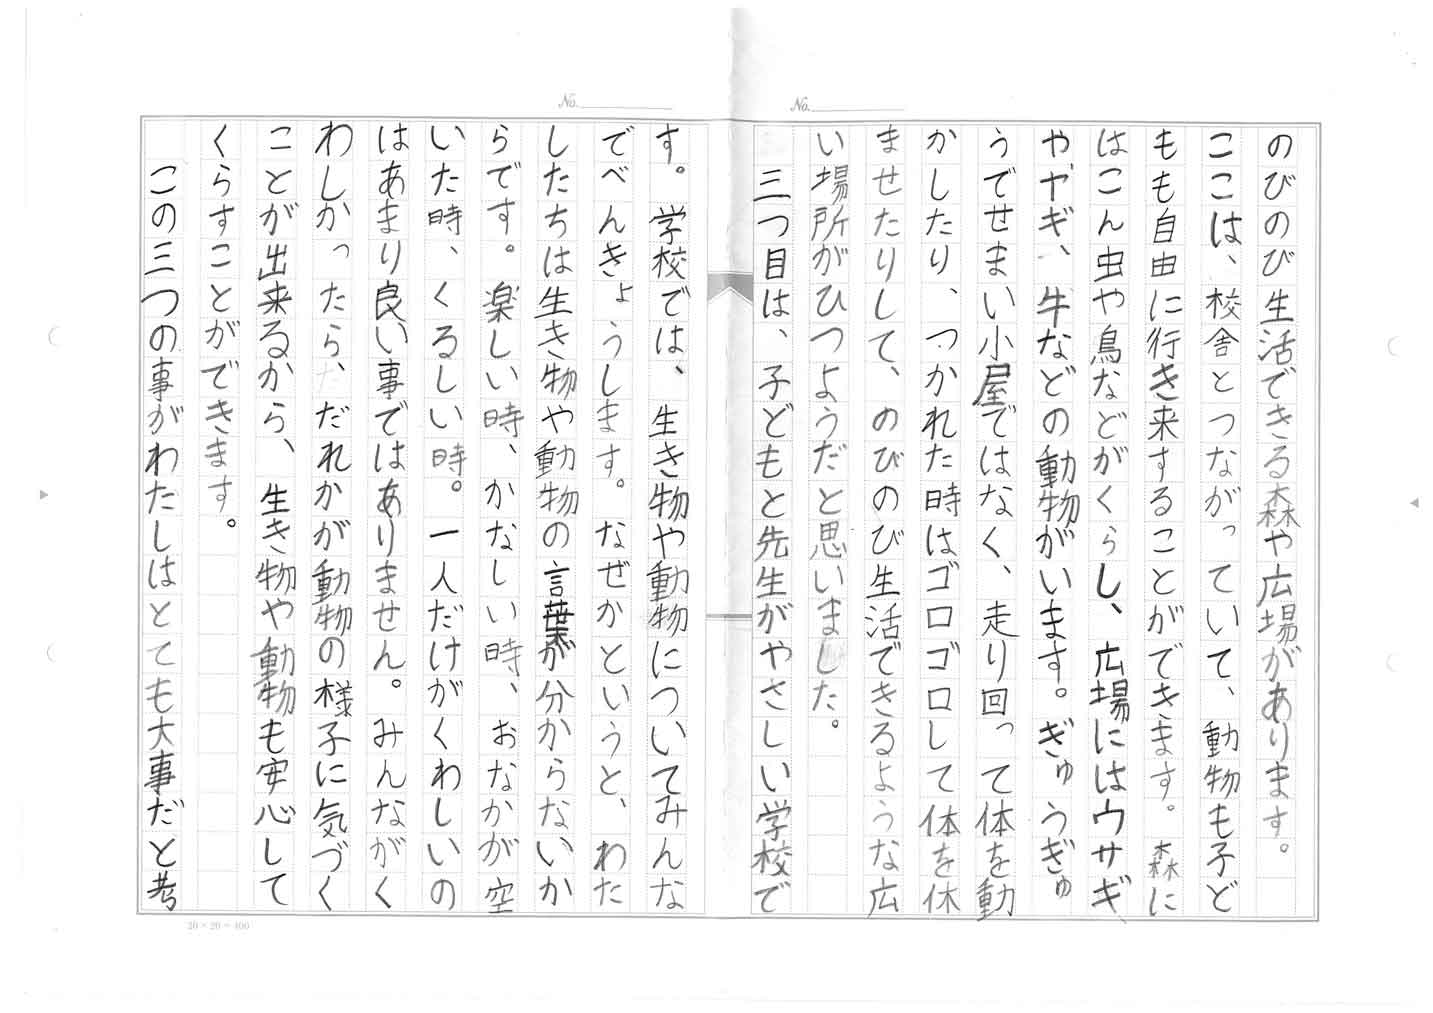 No.
No.
のびのび生活できる森や広場があります。
ここは、校舎とつながっていて、動物も子ど
もも自由に行き来することができます。森に
はこん虫や鳥などがくらし、広場にはウサギ
やヤギ、牛などの動物がいます。ぎゅうぎゅ
うでせまい小屋ではなく、走り回って体を動
かしたり、つかれた時はゴロゴロして体を休
ませたりして、のびのび生活できるような広
い場所がひつようだと思いました。
三つ目は、子どもと先生がやさしい学校で
す。学校では、生き物や動物についてみんな
でべんきょうします。なぜかというと、わた
したちは生き物や動物の言葉が分からないか
らです。楽しい時、かなしい時、おなかが空
いた時、くるしい時。一人だけがくわしいの
はあまり良い事ではありません。みんながく
わしかったら、だれかが動物の様子に気づく
ことが出来るから、生き物や動物も安心して
くらすことができます。
この三つの事がわたしはとても大事だと考
20×20=400